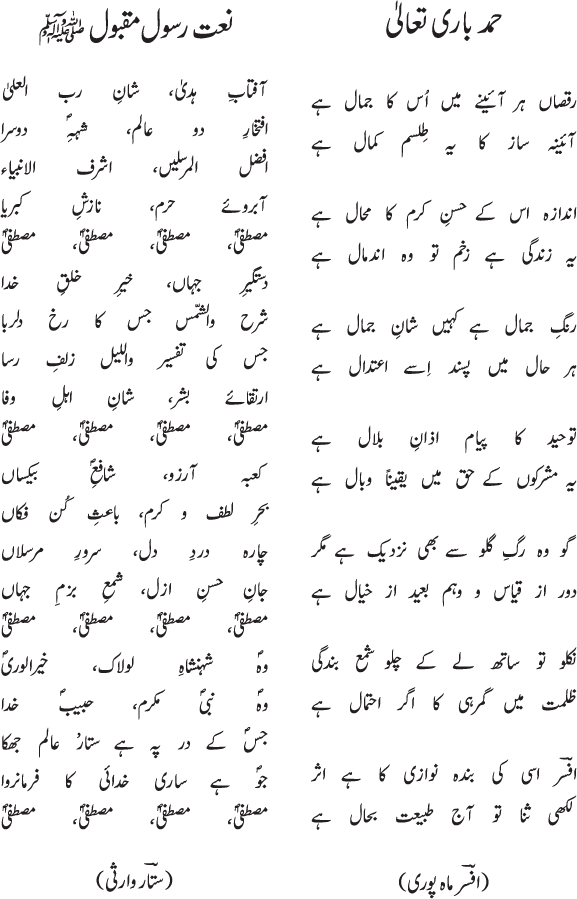 حمد باری تعالیٰ
رقصاں ہر آئینے میں اُس کا جمال ہے
آئینہ ساز کا یہ طِلسم کمال ہے
اندازہ اس کے حسنِ کرم کا محال ہے
یہ زندگی ہے زخم تو وہ اندمال ہے
رنگِ جمال ہے کہیں شانِ جمال ہے
ہر حال میں پسند اِسے اعتدال ہے
توحید کا پیام اذانِ بلال ہے
یہ مشرکوں کے حق میں یقیناً وبال ہے
گو وہ رگِ گلو سے بھی نزدیک ہے مگر
دور از قیاس و وہم بعید از خیال ہے
نکلو تو ساتھ لے کے چلو شمع بندگی
ظلمت میں گمرہی کا اگر احتمال ہے
افسرؔ اسی کی بندہ نوازی کا ہے اثر
لکھی ثنا تو آج طبیعت بحال ہے
(افسرؔ ماہ پوری)
نعت رسول مقبول ﷺ
آفتابِ ہدیٰ، شانِ رب العلیٰ
افتخارِ دو عالم، شہہِؐ دوسرا
افضل المرسلیں، اشرف الانبیاء
آبروئے حرم، نازشِ کبریا
مصطفیٰؐ، مصطفیٰؐ، مصطفیٰؐ، مصطفیٰؐ
دستگیرِ جہاں، خیرِ خلقِ خدا
شرح والشّمس جس کا رخِ دلربا
جس کی تفسیر واللیل زلفِ رسا
ارتقائے بشر، شانِ اہلِ وفا
مصطفیٰؐ، مصطفیٰؐ، مصطفیٰؐ، مصطفیٰؐ
کعبہ آرزو، شافعِؐ بیکساں
بحرِ لطف و کرم، باعثِ کُن فکاں
چارہ دردِ دل، سرورِ مرسلاں
جانِ حسنِ ازل، شمعِ بزمِ جہاں
مصطفیٰؐ، مصطفیٰؐ، مصطفیٰؐ، مصطفیٰؐ
وہؐ شہنشاہِ لولاک، خیرالوریٰؐ
وہؐ نبیؐ مکرم، حبیبؐ خدا
جسؐ کے در پہ ہے ستارؔ عالم جھکا
جوؐ ہے ساری خدائی کا فرمانروا
مصطفیٰؐ، مصطفیٰؐ، مصطفیٰؐ، مصطفیٰؐ
(ستارؔ وارثی)